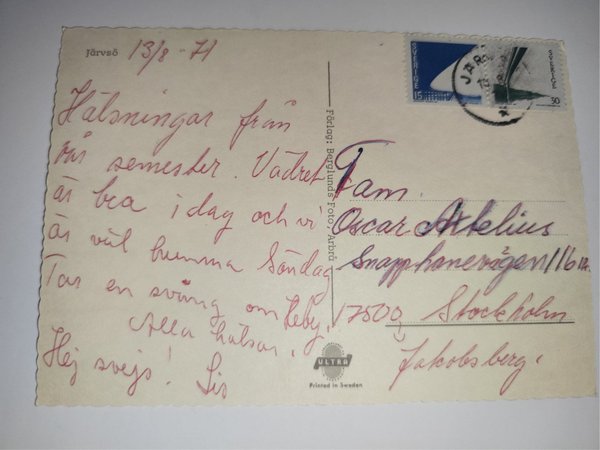 Järvsö 13/8 - 71
Hälsningar från
vår semester. Vädret
är bra i dag och vi
är väl hemma Söndag
Tar en sväng om Heby.
Alla hälsar,
Hej svejs! Sis
Förlag: Berglunds Foto, Arbrå
SVERIGE 15
SVERIGE 50
JÄR
Fam.
Oscar Axtelius
Snapphanevägen 116
17500 Stockholm
Jakobsberg.
ULTRA
Printed in Sweden